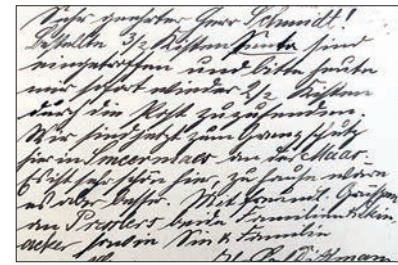 Sehr geehrter Herr Schmidt!
Bestellte 3/2 Kisten Senta sind
eingetroffen und bitte heute
mir sofort wieder 2/2 Kisten
durch die Post zuzusenden.
Wir sind jetzt zum Grenzschutz
hier in Smeermaas an der Maas.
Es ist sehr schön hier, zu Hause wäre
es aber besser. Mit freundl. Grüßen
an Presslers beide Familien
sowie Sie & Familie